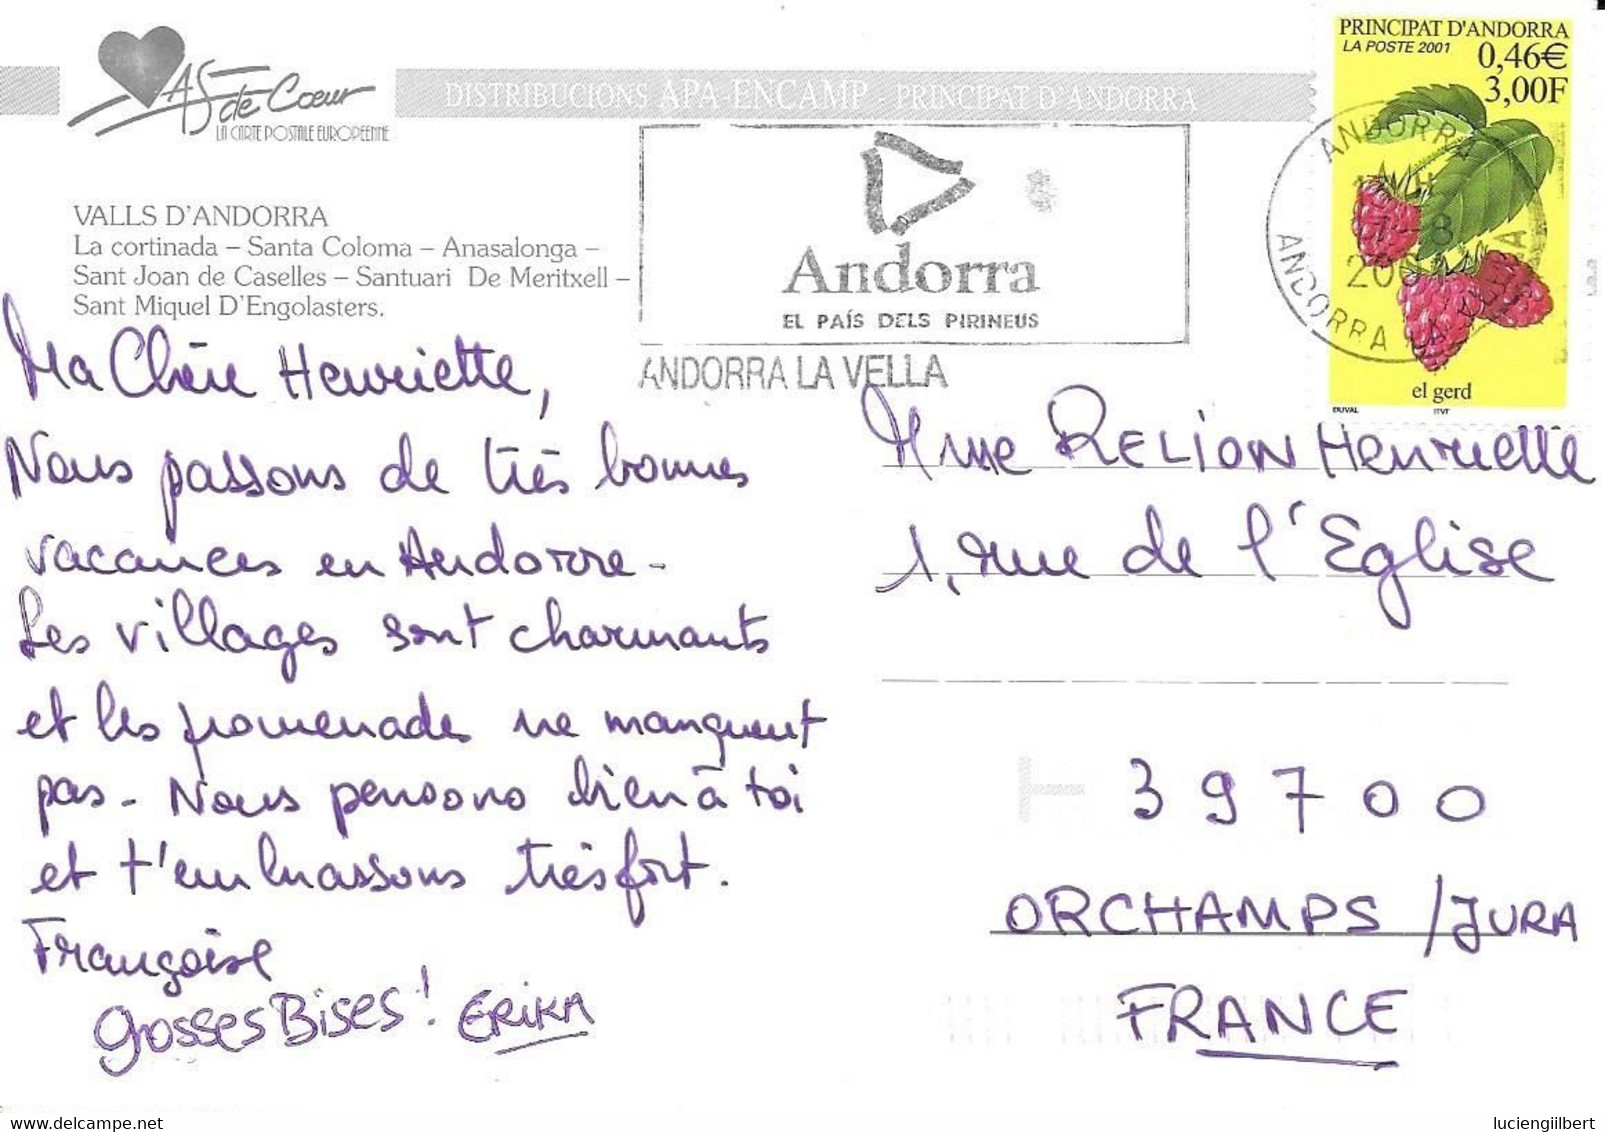 As de Coeur
LA CARTE POSTALE EUROPEENNE
DISTRIBUCIONS APA-ENCAMP PRINCIPAT D'ANDORRA
PRINCIPAT D'ANDORRA
LA POSTE 2001
0,46€
3,00F
el gerd
DUVAL ITVF
ANDORRA
ANDORRA LA VELLA
VALLS D'ANDORRA
La cortinada – Santa Coloma – Anasalonga –
Sant Joan de Caselles – Santuari De Meritxell –
Sant Miquel D'Engolasters.
Andorra
EL PAÍS DELS PIRINEUS
ANDORRA LA VELLA
Ma Chère Henriette,
Nous passons de très bonnes
vacances en Andorre-
Les villages sont charmants
et les promenades ne manquent
pas- Nous pensons bien à toi
et t'embrassons très fort.
Françoise
grosses Bises! ERIKA
Mme RELION Henriette
1, rue de l'Eglise
39700
ORCHAMPS /JURA
FRANCE
luciengilbert